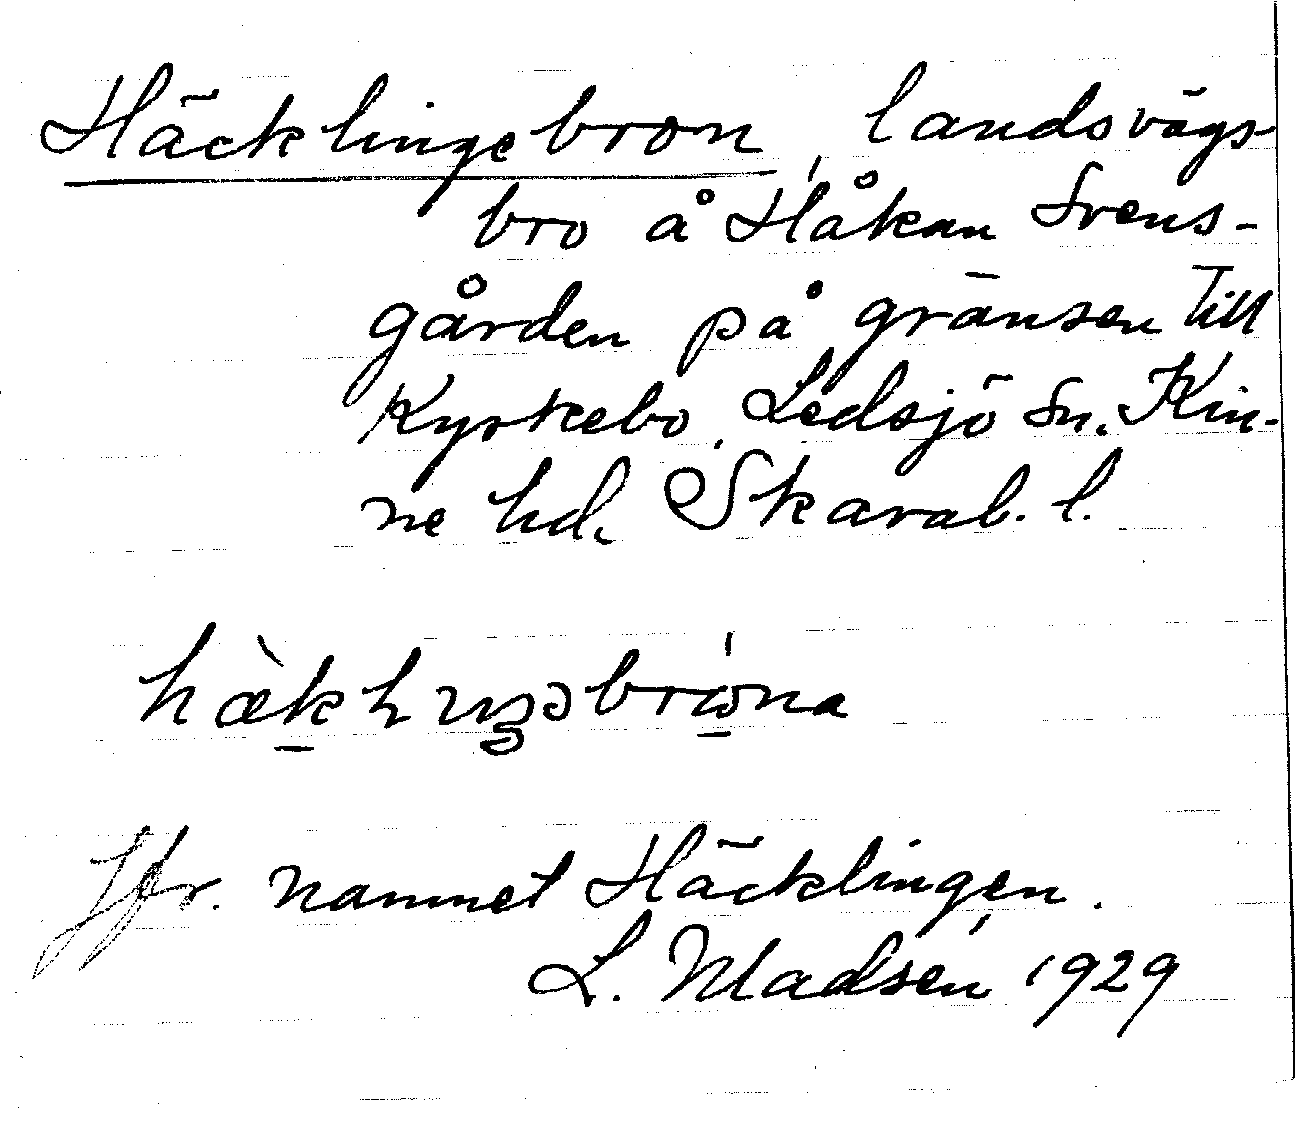 Häcklingebron, landsvägs
bro å Håkan Svens-
gården på gränsen till
Kyrkebo, Ledsjö sn. Kin-
ne hd. Skarab. l.
Jfr. namnet Häcklingen.
L. Madsén 1929